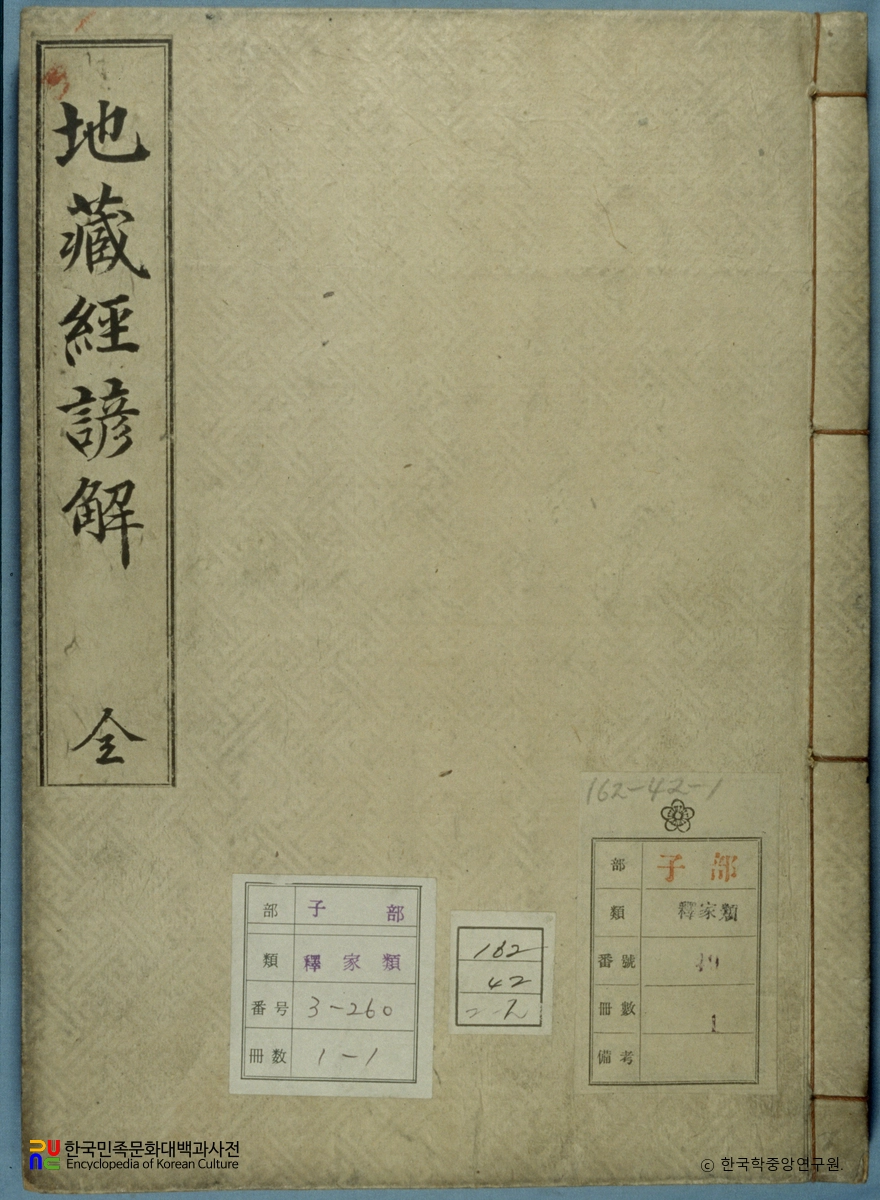 地藏經諺解 全
162-42-1
部 子部
類 釋家類
番號
冊數 1
備考
部 子 部
類 釋家類
番号 3-260
冊数 1-1
162
42
한국민족문화대백과사전
Encyclopedia of Korean Culture
ⓒ 한국학중앙연구원.